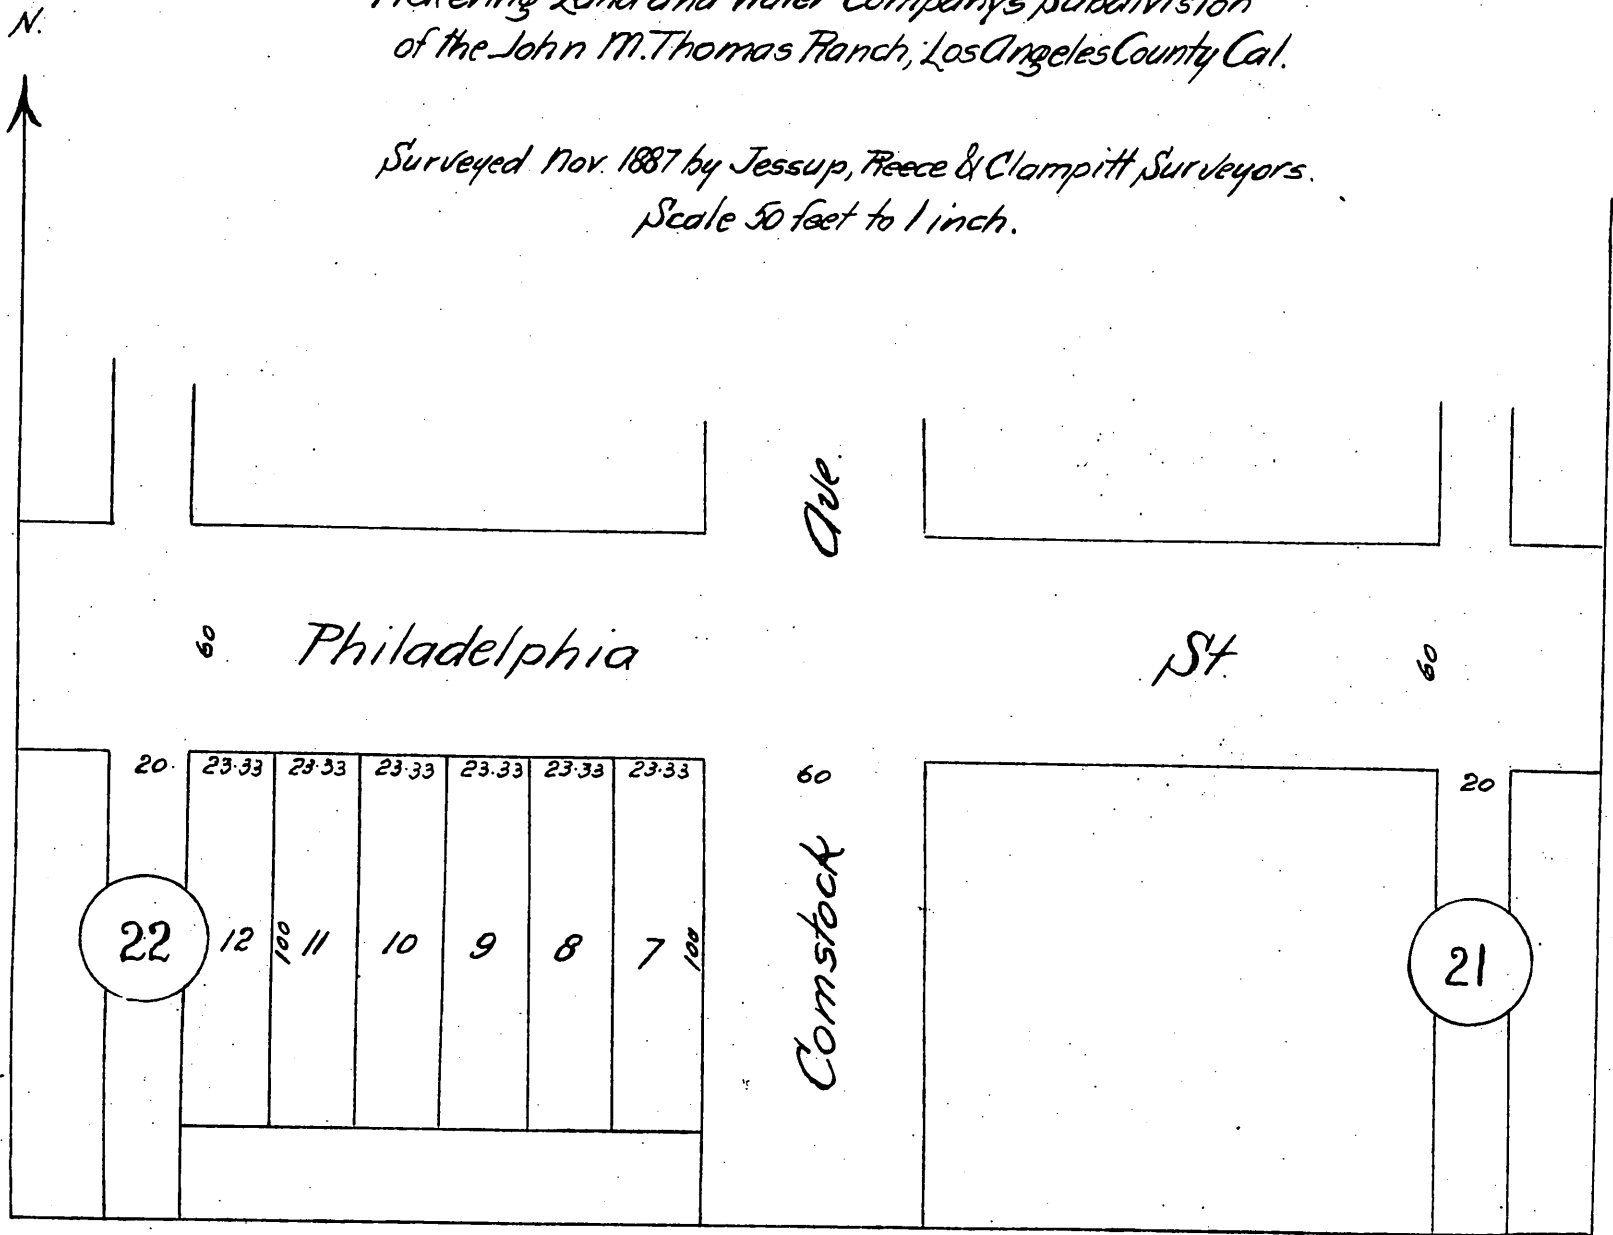 N.
Pickering Land and Water Company's Subdivision
of the John M. Thomas Ranch, Los Angeles County Cal.
Surveyed Nov. 1887 by Jessup, Reece & Clampitt Surveyors.
Scale 50 feet to 1 inch.
Ave.
60 Philadelphia St. 60
20. 23.33 23.33 23.33 23.33 23.33 23.33 60 20
22 12 100 11 10 9 8 7 100 21
Comstock